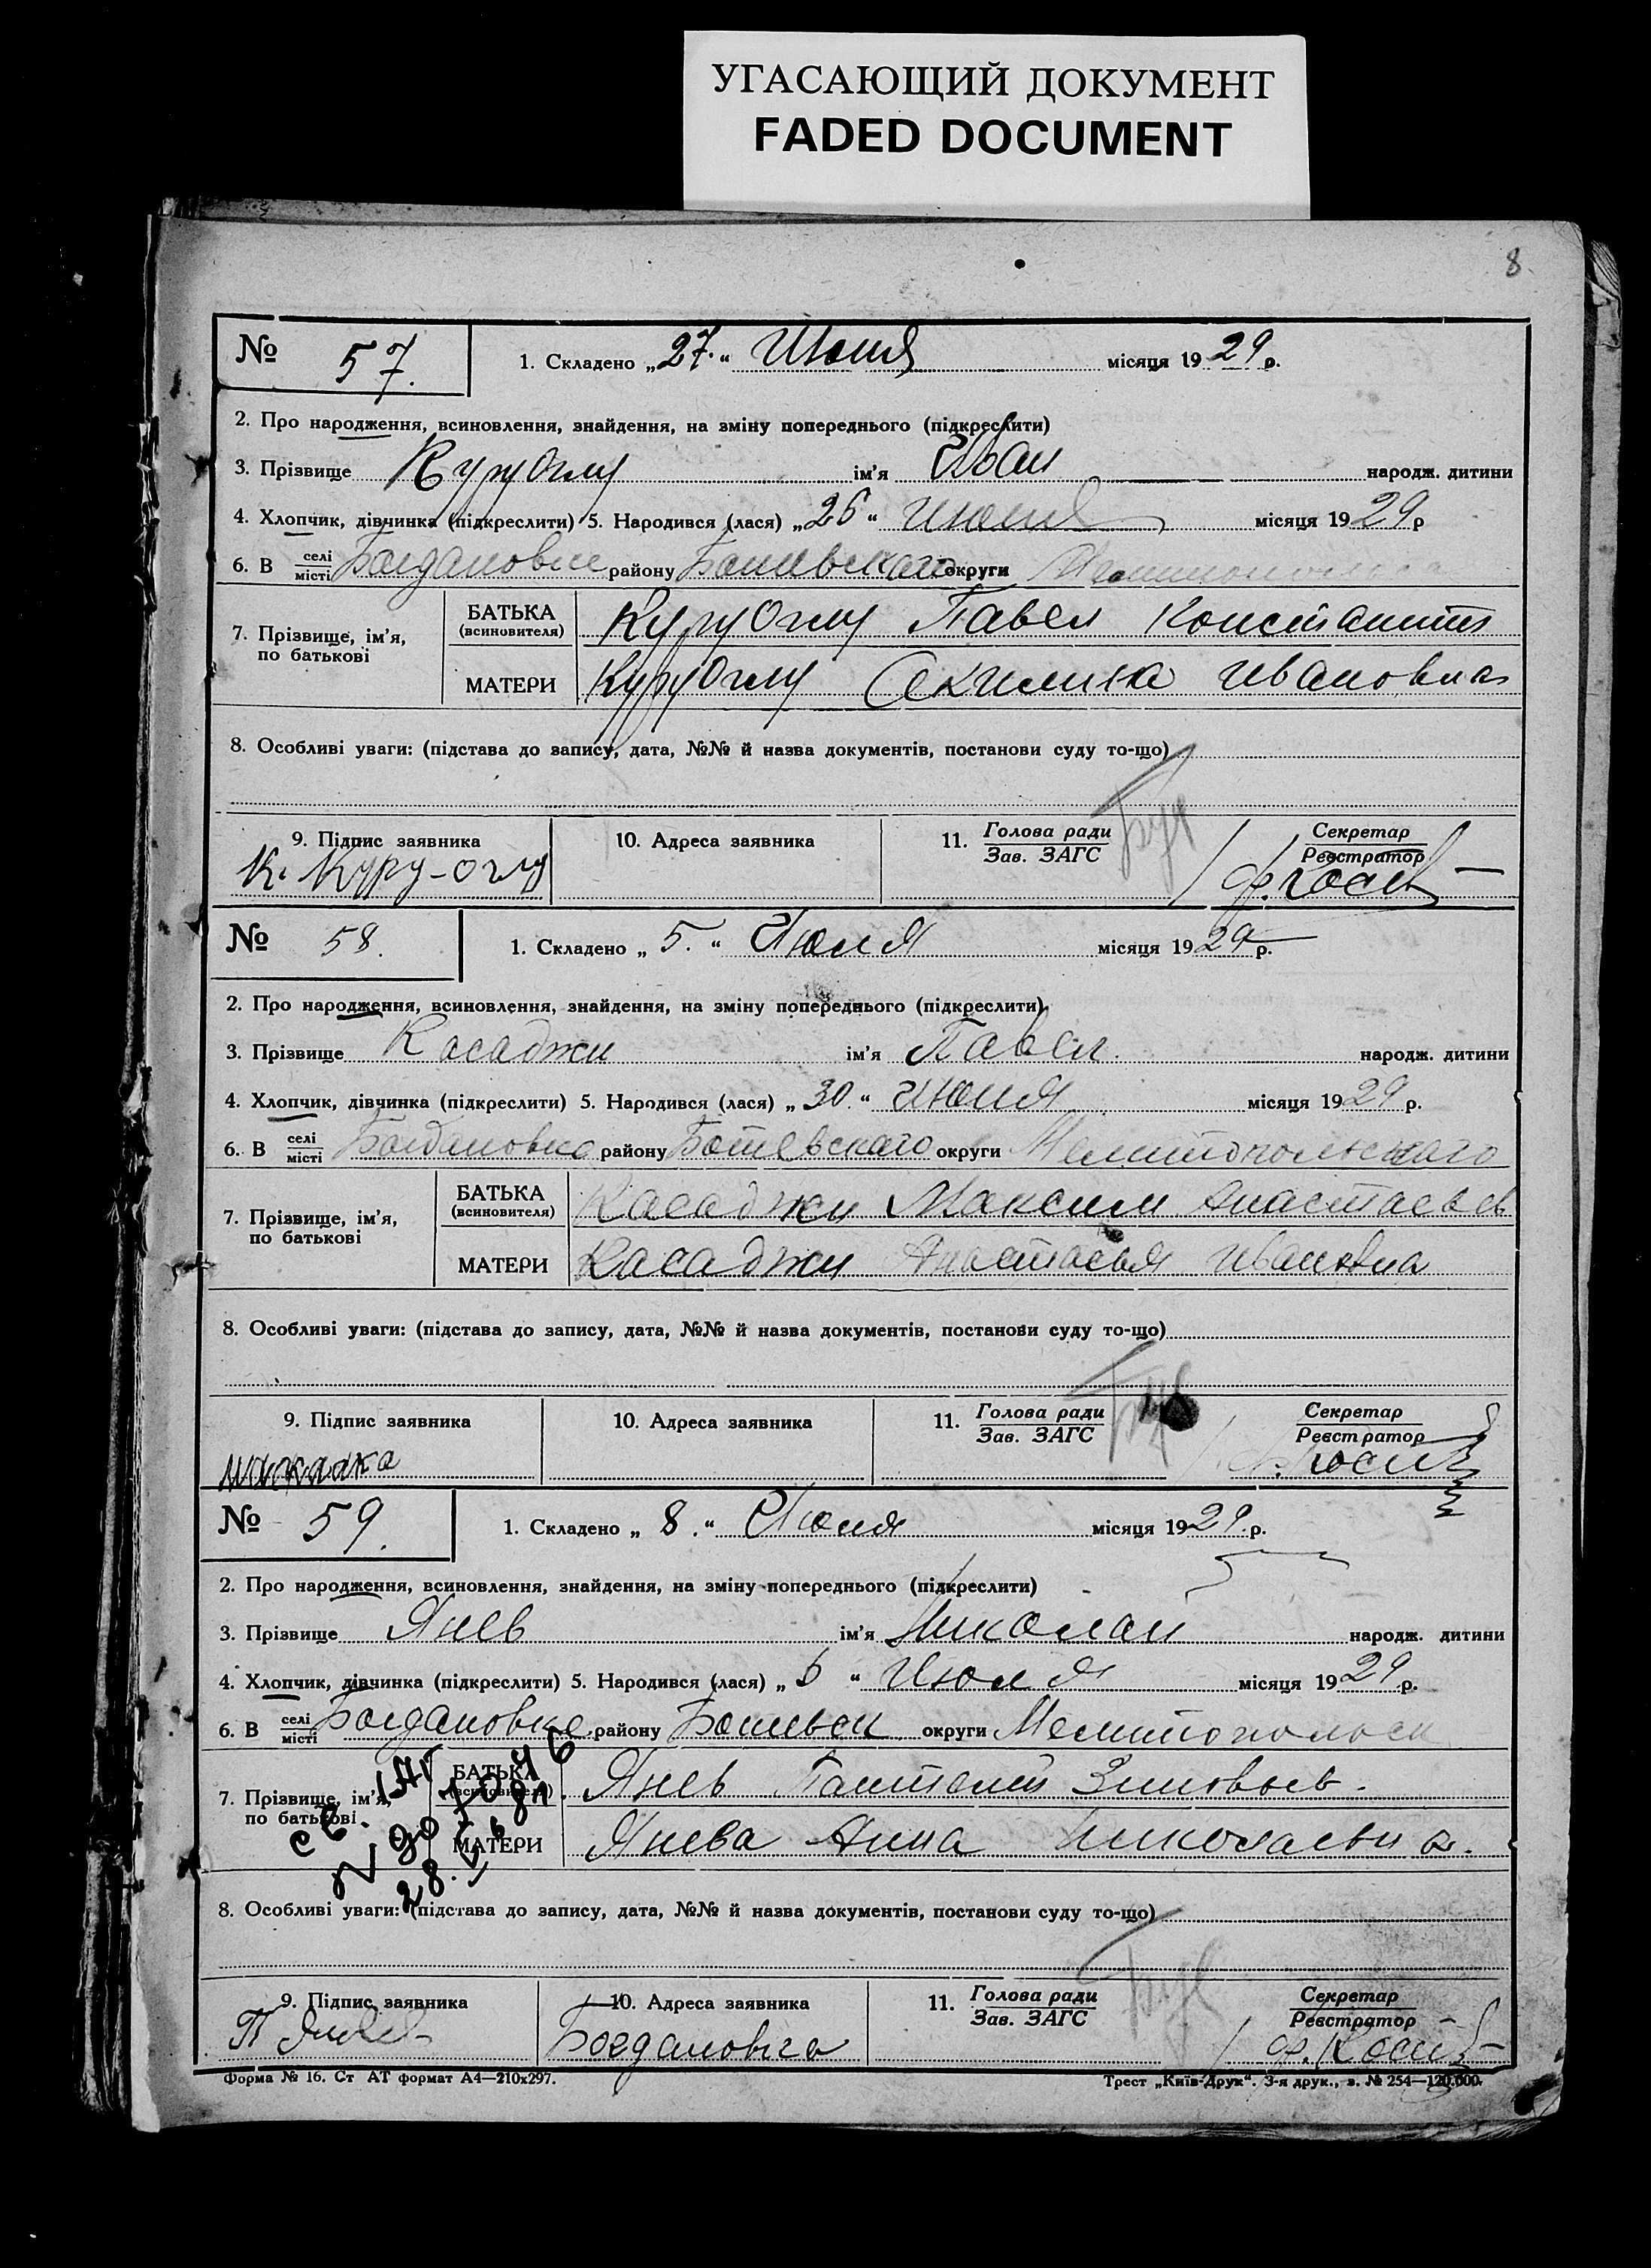 УГАСАЮЩИЙ ДОКУМЕНТ
FADED DOCUMENT
8
№ 57. 1. Складено „27.“ Июня місяця 1929 р.
2. Про народження, всиновлення, знайдення, на зміну попереднього (підкреслити)
3. Прізвище КуруОглу ім'я Иван народж. дитини
4. Хлопчик, дівчинка (підкреслити) 5. Народився (лася) „26“ Июня місяця 1929 р
6. В селі місті Богдановке району Ботевскаго округи
7. Прізвище, ім'я, по батькові БАТЬКА (всиновителя) КуруОглу Павел Константин
МАТЕРИ КуруОглу Акилина Ивановна
8. Особливі уваги: (підстава до запису, дата, №№ й назва документів, постанови суду то-що)
9. Підпис заявника 10. Адреса заявника 11. Голова ради Зав. ЗАГС Секретар Реєстратор
К. Куру-оглу
№ 58. 1. Складено „5.“ Июля місяця 1929 р.
2. Про народження, всиновлення, знайдення, на зміну попереднього (підкреслити)
3. Прізвище Касаджи ім'я Павел. народж. дитини
4. Хлопчик, дівчинка (підкреслити) 5. Народився (лася) „30.“ Июня місяця 1929 р.
6. В селі місті Богдановке району Ботевскаго округи Мелитопольскаго
7. Прізвище, ім'я, по батькові БАТЬКА (всиновителя) Касаджи Максим Анастасьев
МАТЕРИ Касаджи Анастасья Ивановна
8. Особливі уваги: (підстава до запису, дата, №№ й назва документів, постанови суду то-що)
9. Підпис заявника 10. Адреса заявника 11. Голова ради Зав. ЗАГС Секретар Реєстратор
№ 59. 1. Складено „8.“ Июля місяця 1929. р.
2. Про народження, всиновлення, знайдення, на зміну попереднього (підкреслити)
3. Прізвище Янев ім'я Николай народж. дитини
4. Хлопчик, дівчинка (підкреслити) 5. Народився (лася) „5“ Июля місяця 1929 р.
6. В селі місті Богдановке району Ботевск округи Мелитопольск
7. Прізвище, ім'я, по батькові БАТЬКА (всиновителя) Янев Пантелей Зиновьев.
МАТЕРИ Янева Анна Николаевна.
8. Особливі уваги: (підстава до запису, дата, №№ й назва документів, постанови суду то-що)
9. Підпис заявника 10. Адреса заявника 11. Голова ради Зав. ЗАГС Секретар Реєстратор
П Янев Богдановка
Форма № 16. Ст АТ формат А4—210x297. Трест „Київ-Друк“. 3-я друк., з. № 254—120.000.